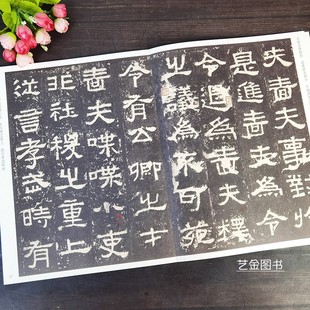 夫嗇夫事對於
是進嗇夫為令
令退為嗇夫釋
之議為不可苑
令有公卿之才
嗇夫喋喋小吏
非社稷之重上
從言孝武時有
艺金图书